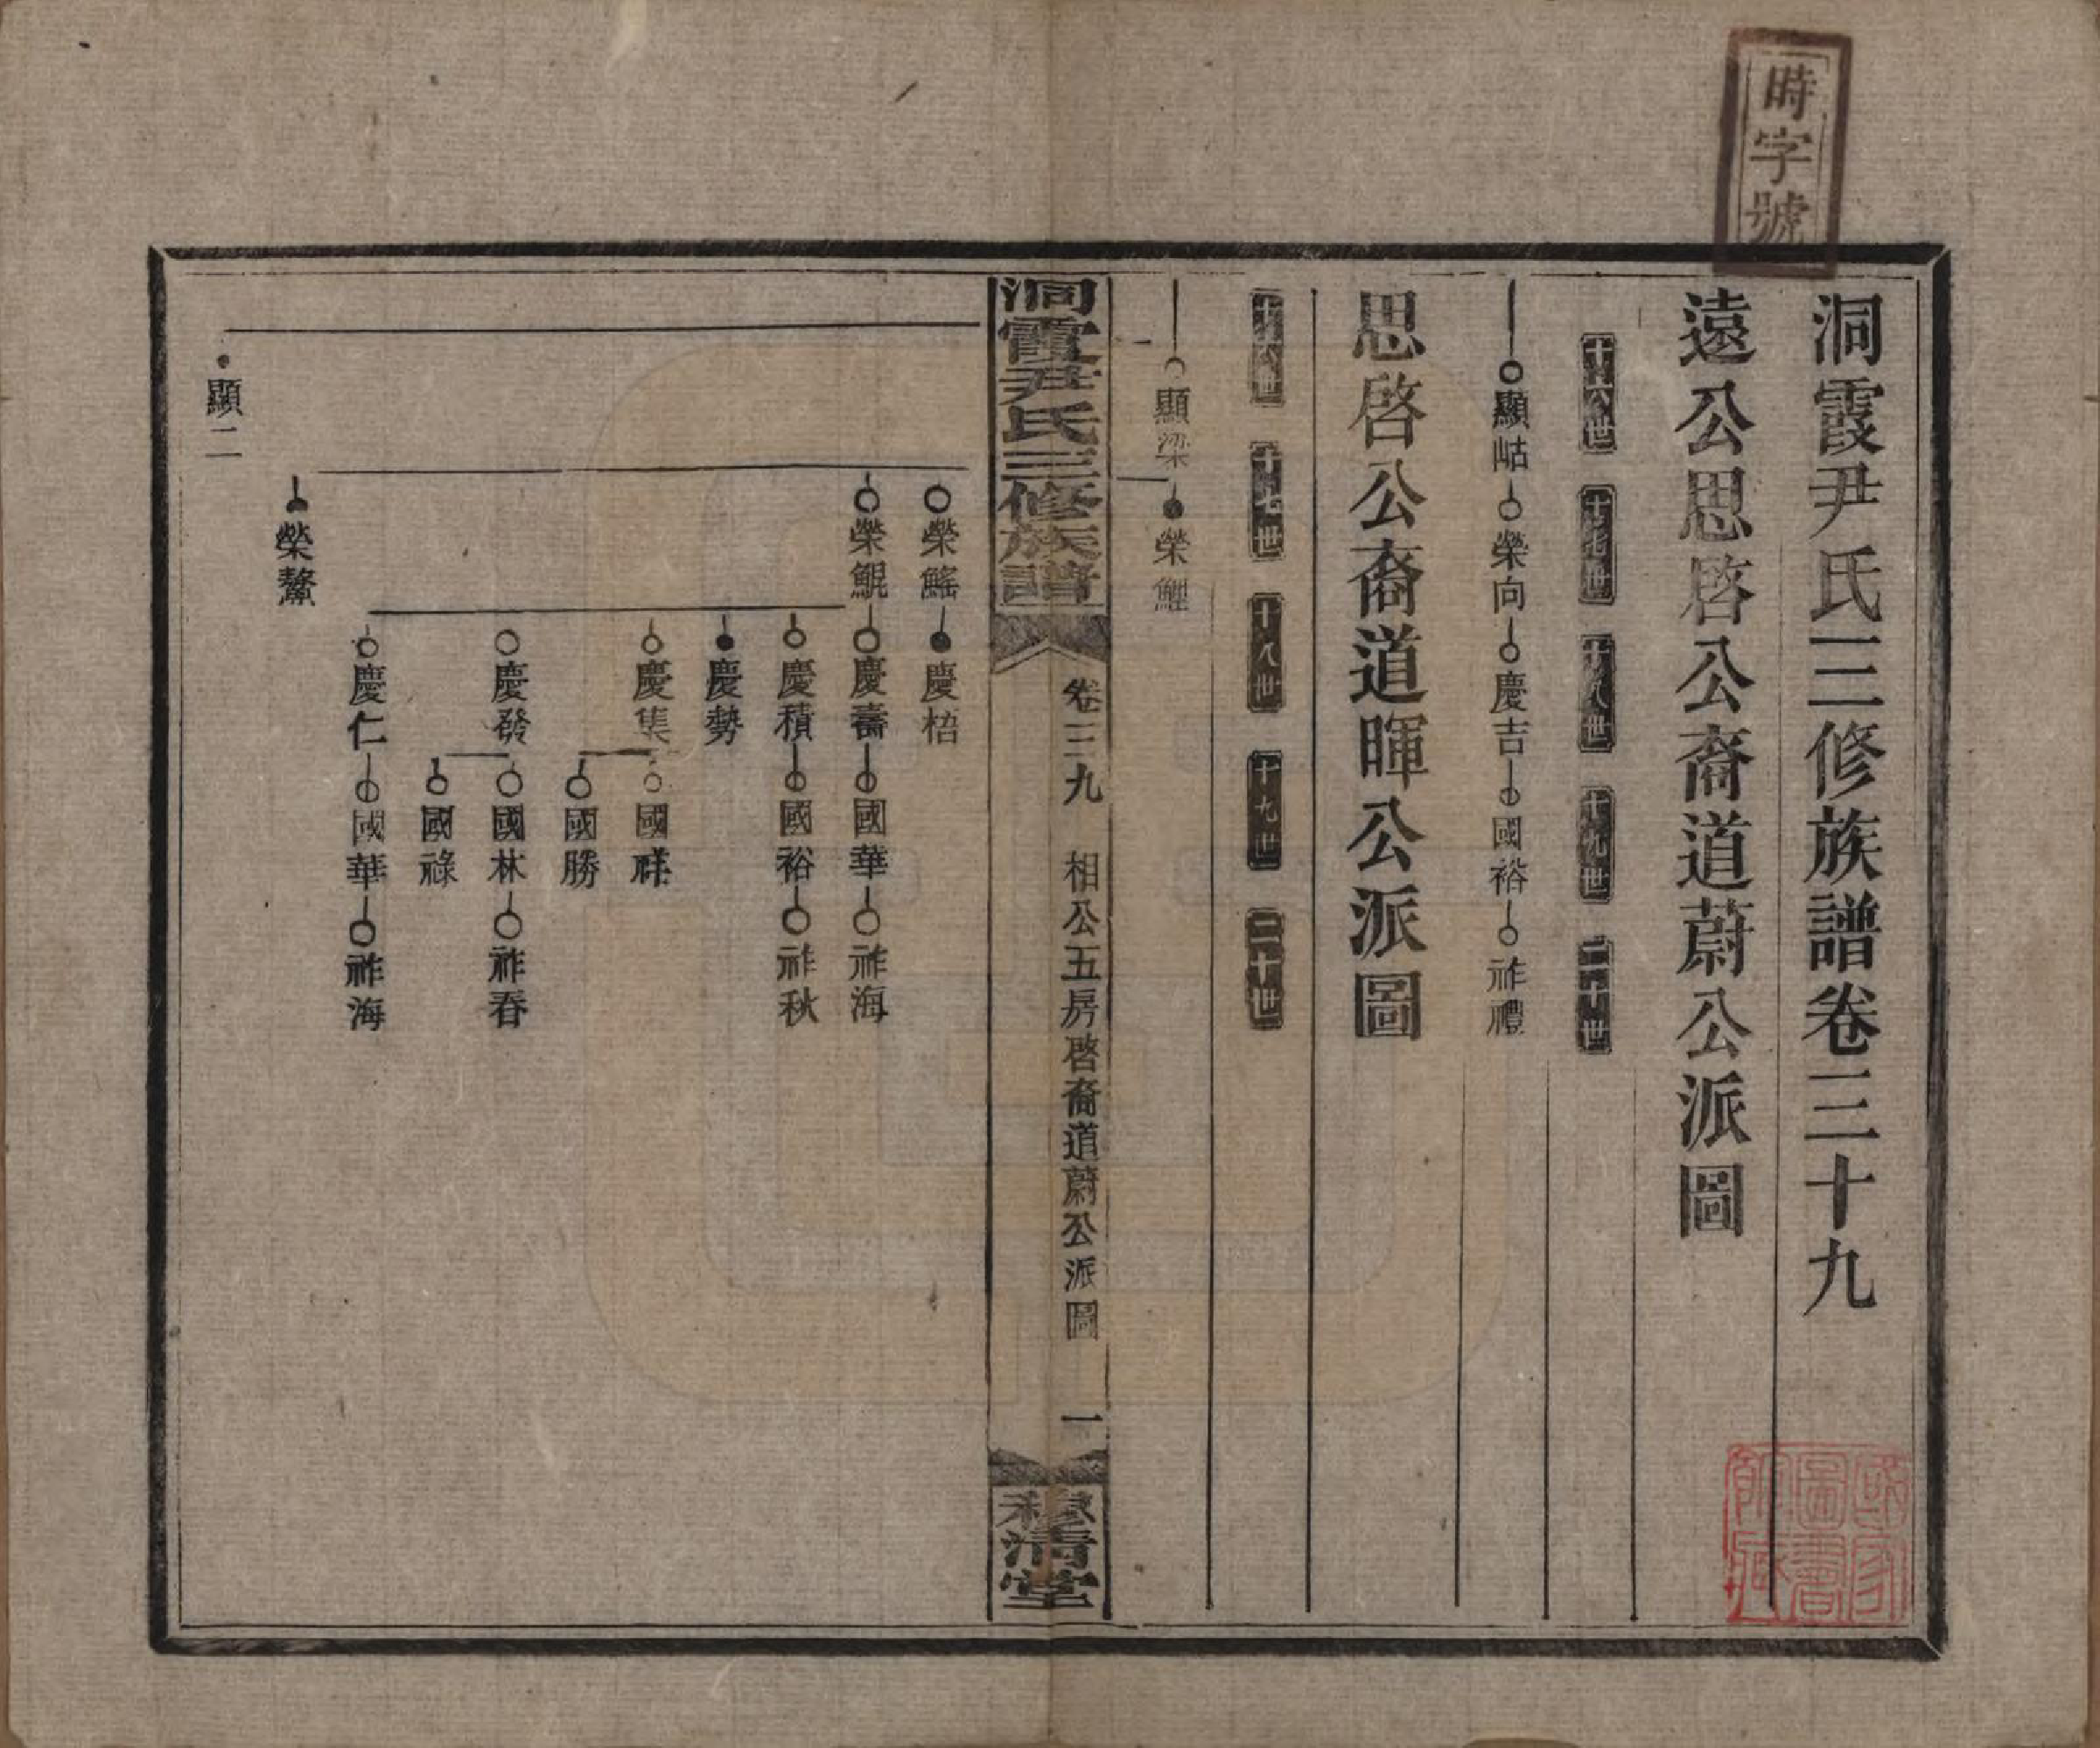 時字號
洞霞尹氏三修族譜卷三十九
遠公思啓公裔道蔚公派圖
十六世 十七世 十八世 十九世 二十世
顯岵 榮向 慶吉 國裕 祚禮
思啓公裔道暉公派圖
十六世 十七世 十八世 十九世 二十世
顯梁 榮鯉
洞霞尹氏三修族譜
卷三九 相公五房啓裔道蔚公派圖 一
穆清堂
榮鰩 慶梧
榮鯤 慶壽 國華 祚海
慶積 國裕 祚秋
慶勢
慶集 國祥
國勝
慶發 國林 祚春
國祿
慶仁 國華 祚海
榮鰲
顯二
國家圖書館藏